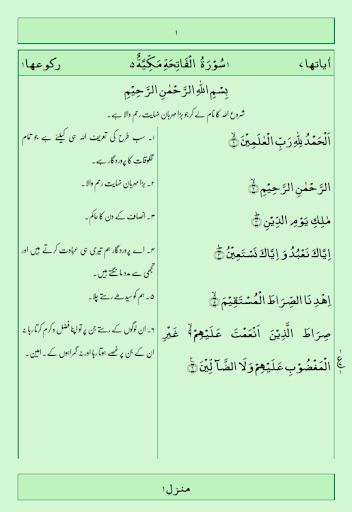 ۱
اٰیاتھا ۷ ۱ سُوْرَۃُ الْفَاتِحَۃِ مَکِّیَّۃٌ ۵ رکوعھا ۱
بِسْمِ اللہِ الرَّحْمٰنِ الرَّحِیْمِ
شروع اللہ کا نام لے کر جو بڑا مہربان نہایت رحم والا ہے۔
اَلْحَمْدُ لِلّٰہِ رَبِّ الْعٰلَمِیْنَ
۱۔ سب طرح کی تعریف اللہ ہی کیلئے ہے جو تمام
مخلوقات کا پروردگار ہے۔
الرَّحْمٰنِ الرَّحِیْمِ
۲۔ بڑا مہربان نہایت رحم والا۔
مٰلِکِ یَوْمِ الدِّیْنِ
۳۔ انصاف کے دن کا حاکم۔
اِیَّاکَ نَعْبُدُ وَ اِیَّاکَ نَسْتَعِیْنُ
۴۔ اے پروردگار ہم تیری ہی عبادت کرتے ہیں اور
تجھی سے مدد مانگتے ہیں۔
اِھْدِ نَا الصِّرَاطَ الْمُسْتَقِیْمَ
۵۔ ہم کو سیدھے رستے چلا۔
صِرَاطَ الَّذِیْنَ اَنْعَمْتَ عَلَیْھِمْ غَیْرِ
الْمَغْضُوْبِ عَلَیْھِمْ وَلَا الضَّآلِّیْنَ
ع
۶۔ ان لوگوں کے رستے جن پر تو اپنا فضل و کرم کرتا رہا
ان کے جن پر غصے ہوتا رہا اور نہ گمراہوں کے۔ آمین۔
منزل ۱